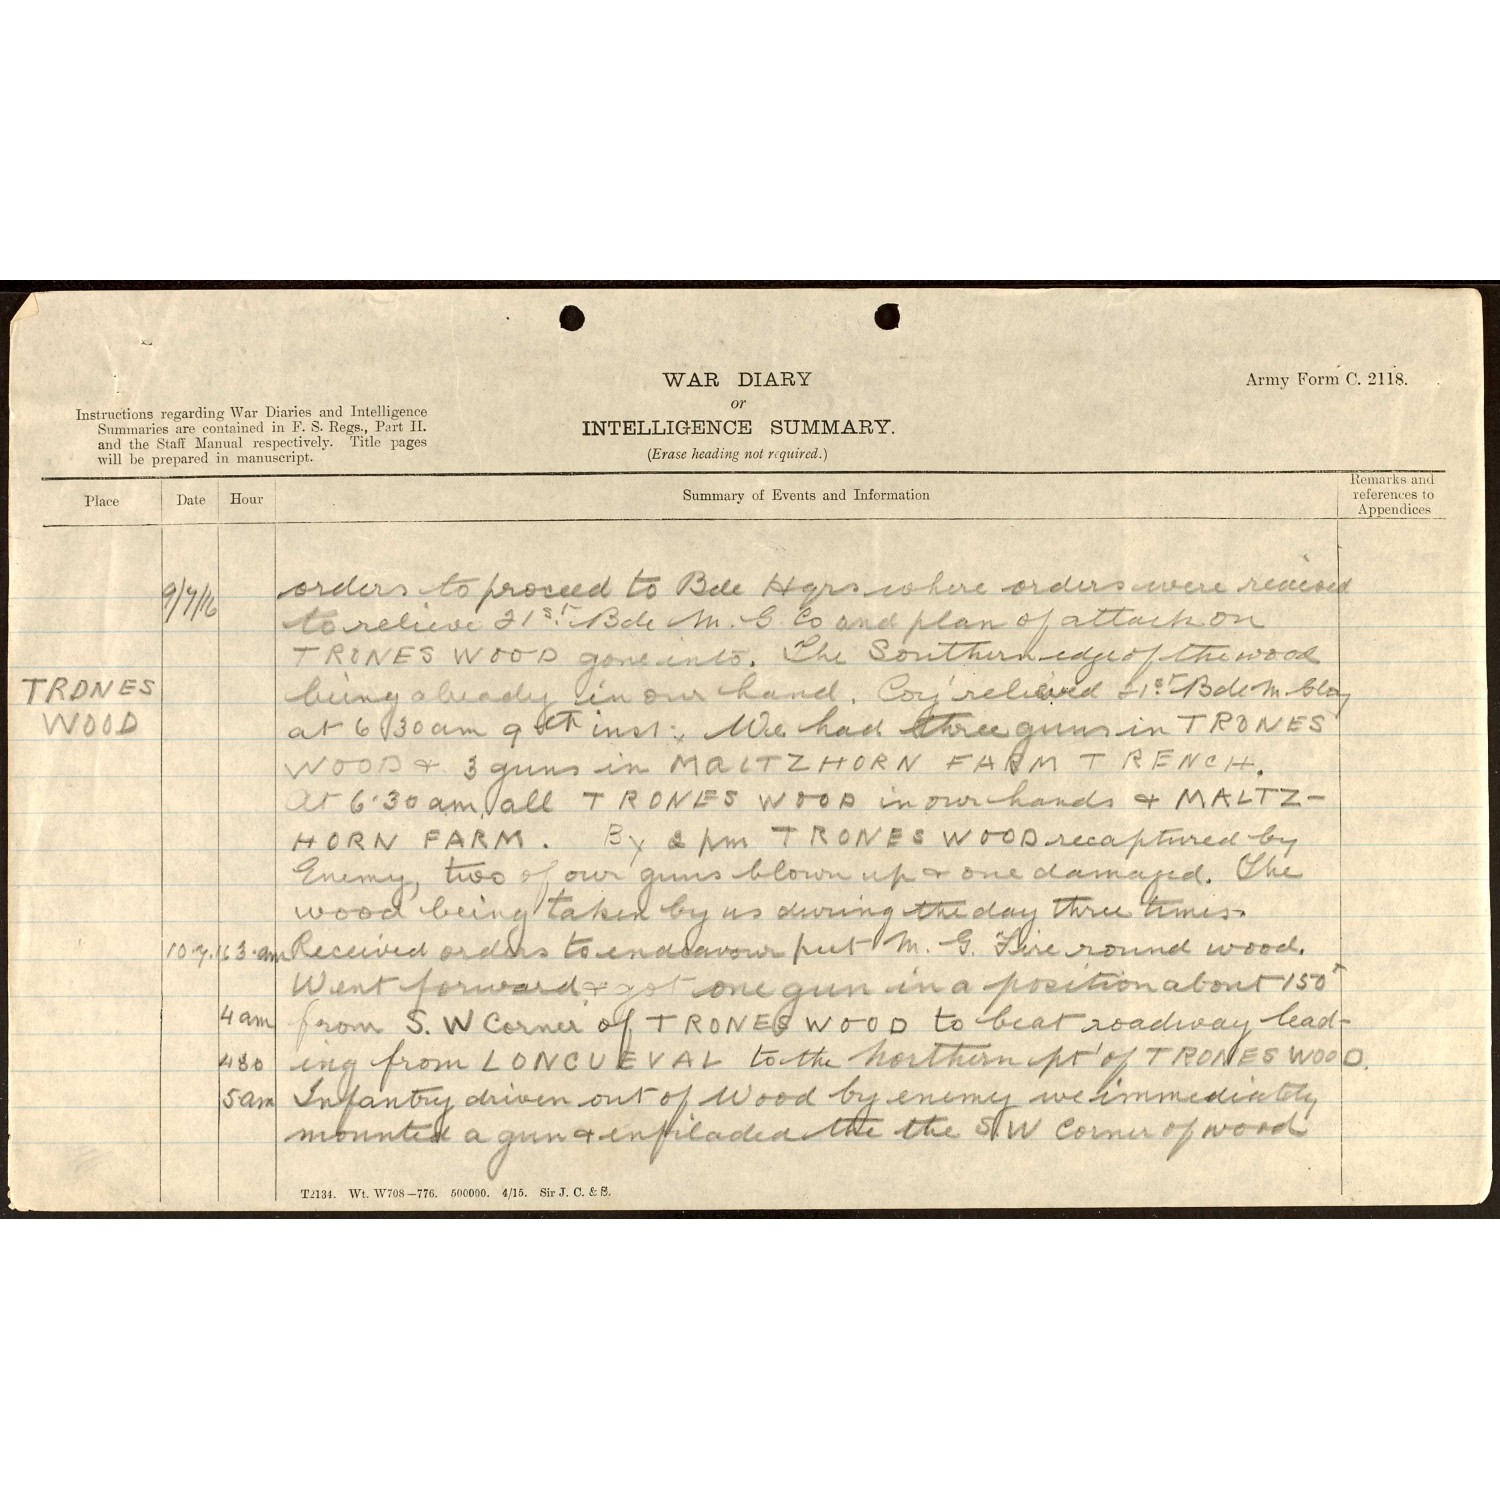 WAR DIARY
or
INTELLIGENCE SUMMARY.
(Erase heading not required.)
Army Form C. 2118.
Instructions regarding War Diaries and Intelligence
Summaries are contained in F. S. Regs., Part II.
and the Staff Manual respectively. Title pages
will be prepared in manuscript.
Place Date Hour Summary of Events and Information Remarks and references to Appendices
9/7/16 orders to proceed to Bde Hqrs where orders were received
to relieve 21st Bde M. G. Co and plan of attack on
TRONES WOOD gone into. The Southern edge of the wood
TRONES WOOD
being already in our hand. Coy relieved 21st Bde M.G. Coy
at 6 30 am 9th inst: We had three guns in TRONES
WOOD & 3 guns in MALTZHORN FARM TRENCH.
At 6.30 am, all TRONES WOOD in our hands & MALTZ-
HORN FARM. By 2 pm TRONES WOOD recaptured by
Enemy, two of our guns blown up & one damaged. The
wood being taken by us during the day three times.
10.7.16 3.am Received orders to endeavour put M. G. Fire round wood.
Went forward & got one gun in a position about 150x
4 am from S. W Corner of TRONES WOOD to beat roadway lead-
430 ing from LONGUEVAL to the Northern pt of TRONES WOOD.
5 am Infantry driven out of Wood by enemy we immediately
mounted a gun & enfiladed the the S.W Corner of wood
T2134. Wt. W708—776. 500000. 4/15. Sir J. C. & S.